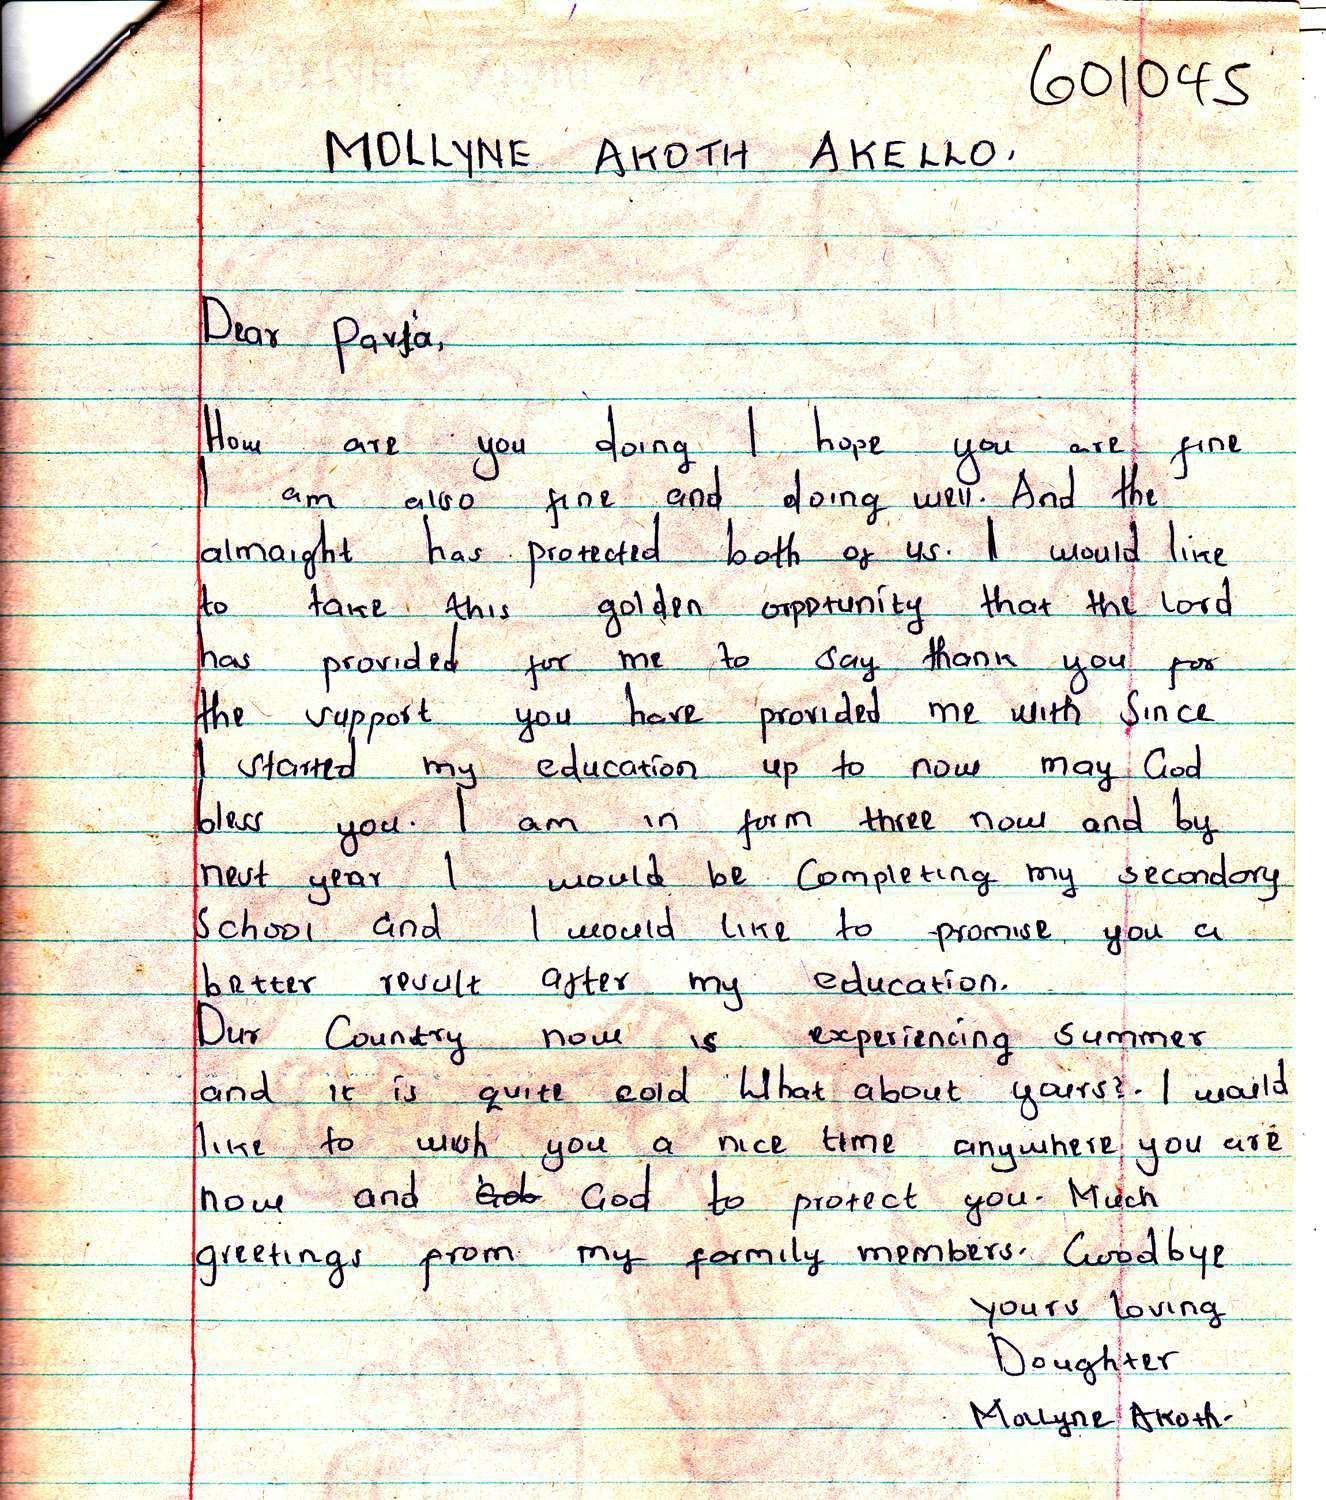 601045
MOLLYNE AKOTH AKELLO.
Dear Parja,
How are you doing I hope you are fine
I am also fine and doing well. And the
almaight has protected both of us. I would like
to take this golden orpptunity that the lord
has provided for me to say thank you for
the support you have provided me with Since
I started my education up to now may God
bless you. I am in form three now and by
next year I would be Completing my secondary
School and I would like to promise you a
better result after my education.
Our Country now is experiencing summer
and it is quite cold What about yours?. I would
like to wish you a nice time anywhere you are
now and God to protect you. Much
greetings from my formily members. Goodbye
yours loving
Doughter
Mollyne Akoth.